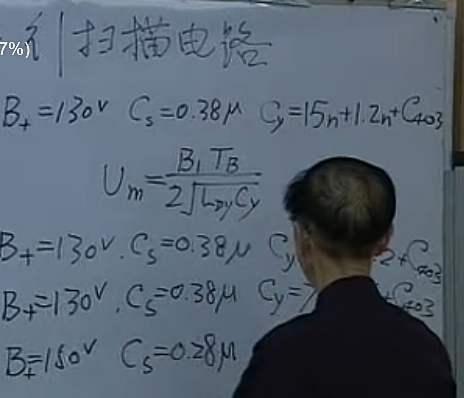 7%)
扫描电路
B+=130V Cs=0.38μ Cy=15n+1.2n+C403
Um=B1TB/2√LDyCy
B+=130V. Cs=0.38μ Cy 2+C403
B+=130V. Cs=0.38μ Cy= +C403
B+=180V Cs=0.28μ